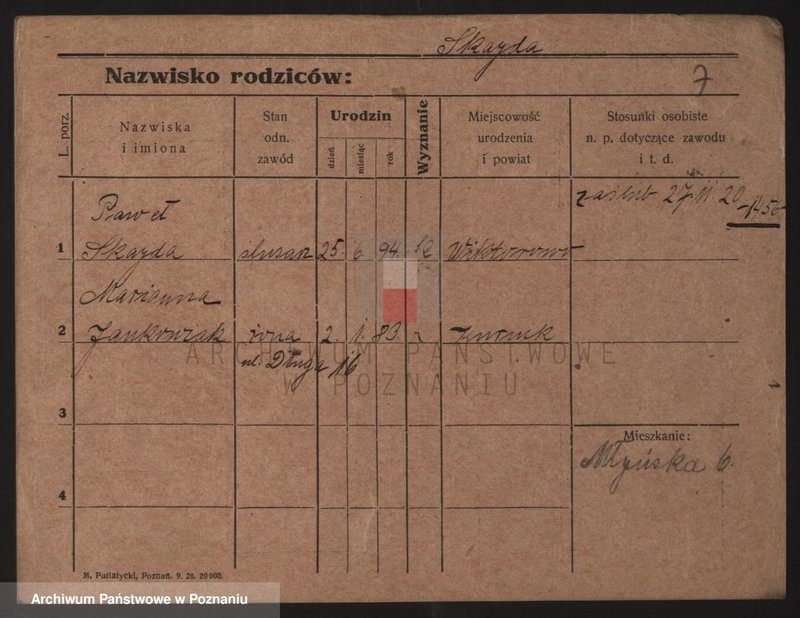 Skazda
Nazwisko rodziców:
7
L. porz.
Nazwiska
i imiona
Stan
odn.
zawód
Urodzin
dzień
miesiąc
rok
Wyznanie
Miejscowość
urodzenia
i powiat
Stosunki osobiste
n. p. dotyczące zawodu
i t. d.
zaślub 27.11.20 -1456-
Paweł
1 Skazda ślusarz 25. 6. 94. Wiktorowo
Marianna
2 Jankowiak żona 2. 1. 83.
ul. Długa 16
ARCHIWUM PAŃSTWOWE
W POZNANIU
3
Mieszkanie:
Młyńska 6.
4
M. Putiatycki, Poznań. 9. 20. 20 000.
Archiwum Państwowe w Poznaniu